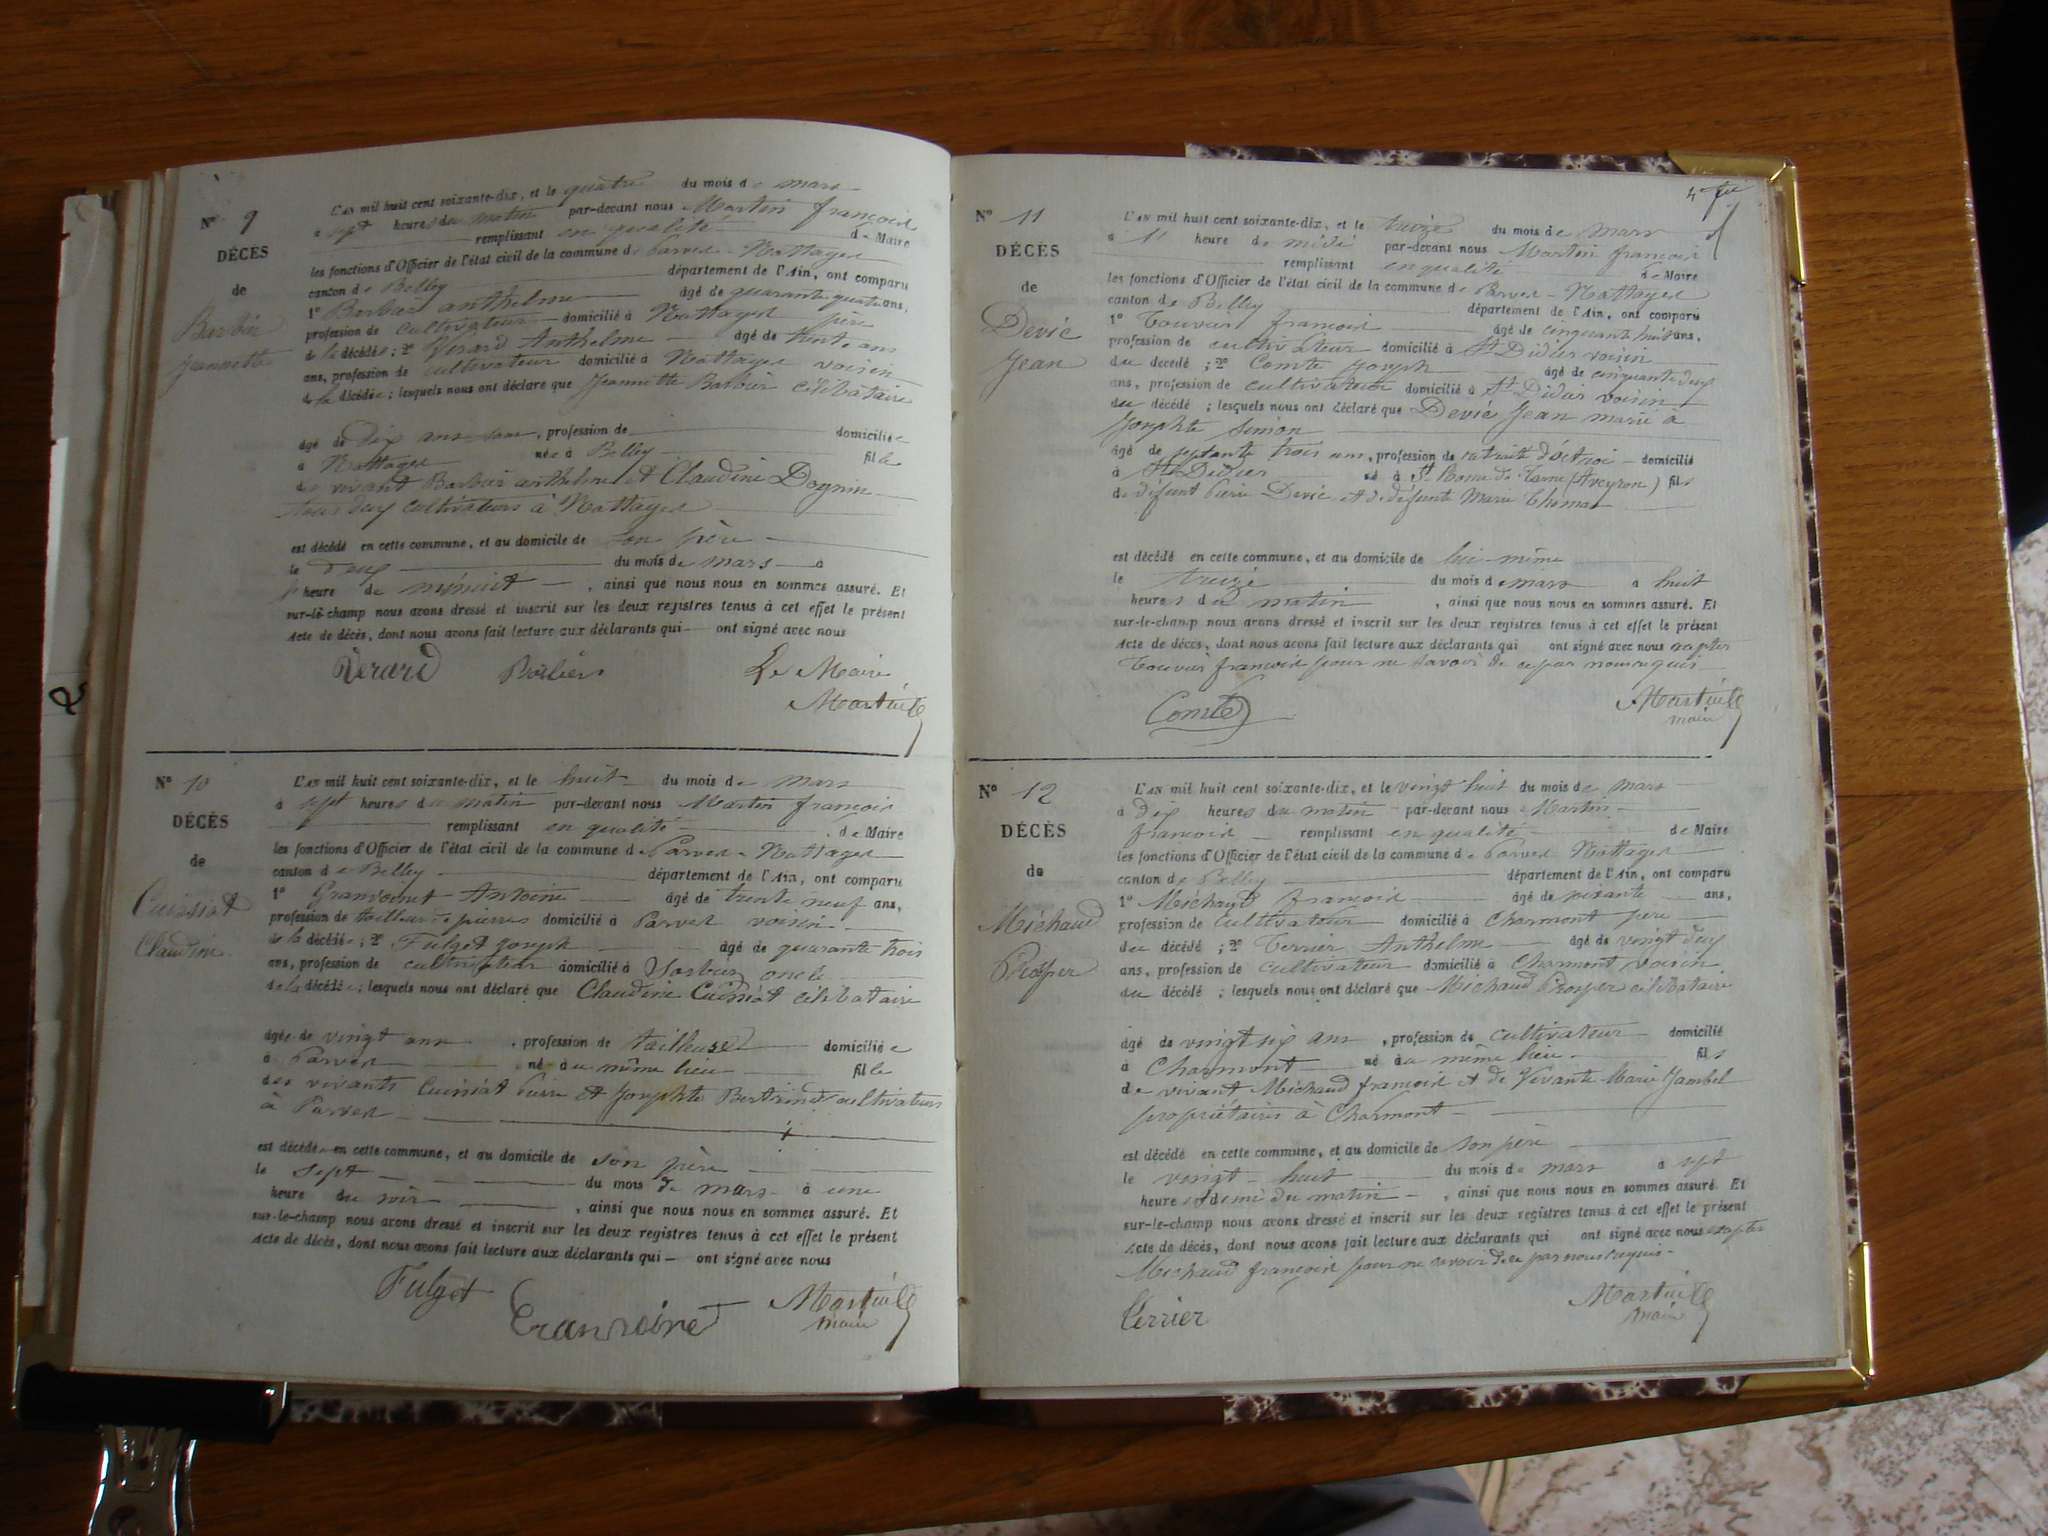 N° 9
DÉCÈS
de
Barbier
Jeannette
L'AN mil huit cent soixante-dix, et le quatre du mois de mars
à sept heures du matin par-devant nous Martin françois
remplissant en qualité de Maire
les fonctions d'Officier de l'état civil de la commune de Parves-Nattages
canton de Belley département de l'Ain, ont comparu
1° Barbier anthelme âgé de quarante quatre ans,
profession de cultivateur domicilié à Nattages père
de la décédée ; 2° Verard Anthelme âgé de trente ans
ans, profession de cultivateur domicilié à Nattages voisin
de la décédée ; lesquels nous ont déclaré que Jeannette Barbier célibataire
âgé de dix ans, profession de domiciliée
à Nattages née à Belley fille
de vivant Barbier anthelme et Claudine Dognin
tous deux cultivateurs à Nattages
est décédé en cette commune, et au domicile de son père
le deux du mois de mars à
heure de minuit, ainsi que nous nous en sommes assuré. Et
sur-le-champ nous avons dressé et inscrit sur les deux registres tenus à cet effet le présent
Acte de décès, dont nous avons fait lecture aux déclarants qui ont signé avec nous
Verard Barbier Le Maire
Martin
N° 10
DÉCÈS
de
Cuissiat
Claudine
L'AN mil huit cent soixante-dix, et le huit du mois de mars
à sept heures du matin par-devant nous Martin françois
remplissant en qualité de Maire
les fonctions d'Officier de l'état civil de la commune de Parves-Nattages
canton de Belley département de l'Ain, ont comparu
1° Antoine âgé de trente neuf ans,
profession de tailleur de pierres domicilié à Parves voisin
de la décédée ; 2° Fulget Joseph âgé de quarante trois
ans, profession de cultivateur domicilié à Sorbier oncle
de la décédée ; lesquels nous ont déclaré que Claudine Cuissiat célibataire
âgée de vingt ans, profession de tailleuse domiciliée
à Parves née au même lieu fille
des vivants Cuissiat Pierre et Josephte Bertrand cultivateurs
à Parves
est décédée en cette commune, et au domicile de son père
le sept du mois de mars à une
heure du soir, ainsi que nous nous en sommes assuré. Et
sur-le-champ nous avons dressé et inscrit sur les deux registres tenus à cet effet le présent
Acte de décès, dont nous avons fait lecture aux déclarants qui ont signé avec nous
Fulget Martin
maire
N° 11
DÉCÈS
de
Devic
Jean
L'AN mil huit cent soixante-dix, et le treize du mois de mars
à 1 heure de midi par-devant nous Martin françois
remplissant en qualité de Maire
les fonctions d'Officier de l'état civil de la commune de Parves-Nattages
canton de Belley département de l'Ain, ont comparu
1° Touvier françois âgé de cinquante huit ans,
profession de cultivateur domicilié à St Didier voisin
du décédé ; 2° Comte Joseph âgé de cinquante deux
ans, profession de cultivateur domicilié à St Didier voisin
du décédé ; lesquels nous ont déclaré que Devic Jean marié à
Josephte Simon
âgé de septante trois ans, profession de retraité d'octroi domicilié
à St Didier né à St Rome de Tarn (Aveyron) fils
de défunt Pierre Devic et de défunte Marie Thomas
est décédé en cette commune, et au domicile de lui-même
le treize du mois de mars à huit
heures du matin, ainsi que nous nous en sommes assuré. Et
sur-le-champ nous avons dressé et inscrit sur les deux registres tenus à cet effet le présent
Acte de décès, dont nous avons fait lecture aux déclarants qui ont signé avec nous excepter
Touvier françois pour ne savoir de ce par nous requis
Comte Martin
maire
N° 12
DÉCÈS
de
Michaud
Prosper
L'AN mil huit cent soixante-dix, et le vingt huit du mois de mars
à dix heures du matin par-devant nous Martin
françois remplissant en qualité de Maire
les fonctions d'Officier de l'état civil de la commune de Parves Nattages
canton de Belley département de l'Ain, ont comparu
1° Michaud françois âgé de soixante ans,
profession de cultivateur domicilié à Charmont père
du décédé ; 2° Terrier Anthelme âgé de vingt deux
ans, profession de cultivateur domicilié à Charmont voisin
du décédé ; lesquels nous ont déclaré que Michaud Prosper célibataire
âgé de vingt six ans, profession de cultivateur domicilié
à Charmont né au même lieu fils
de vivant Michaud françois et de vivante Marie Jambel
propriétaires à Charmont
est décédé en cette commune, et au domicile de son père
le vingt-huit du mois de mars à sept
heures et demi du matin, ainsi que nous nous en sommes assuré. Et
sur-le-champ nous avons dressé et inscrit sur les deux registres tenus à cet effet le présent
Acte de décès, dont nous avons fait lecture aux déclarants qui ont signé avec nous excepter
Michaud françois pour ne savoir de ce par nous requis
Terrier Martin
maire